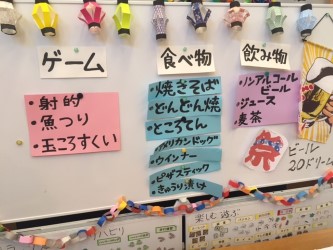 ゲーム
・射的
・魚つり
・玉ころすくい
食べ物
・焼きそば
・どんどん焼
・ところてん
・アメリカンドッグ
・ウインナー
・ピザスティック
・きゅうり漬け
飲み物
・ノンアルコール
ビール
・ジュース
・麦茶
祭
ビール
20ドリーム
楽しむ 遊ぶ